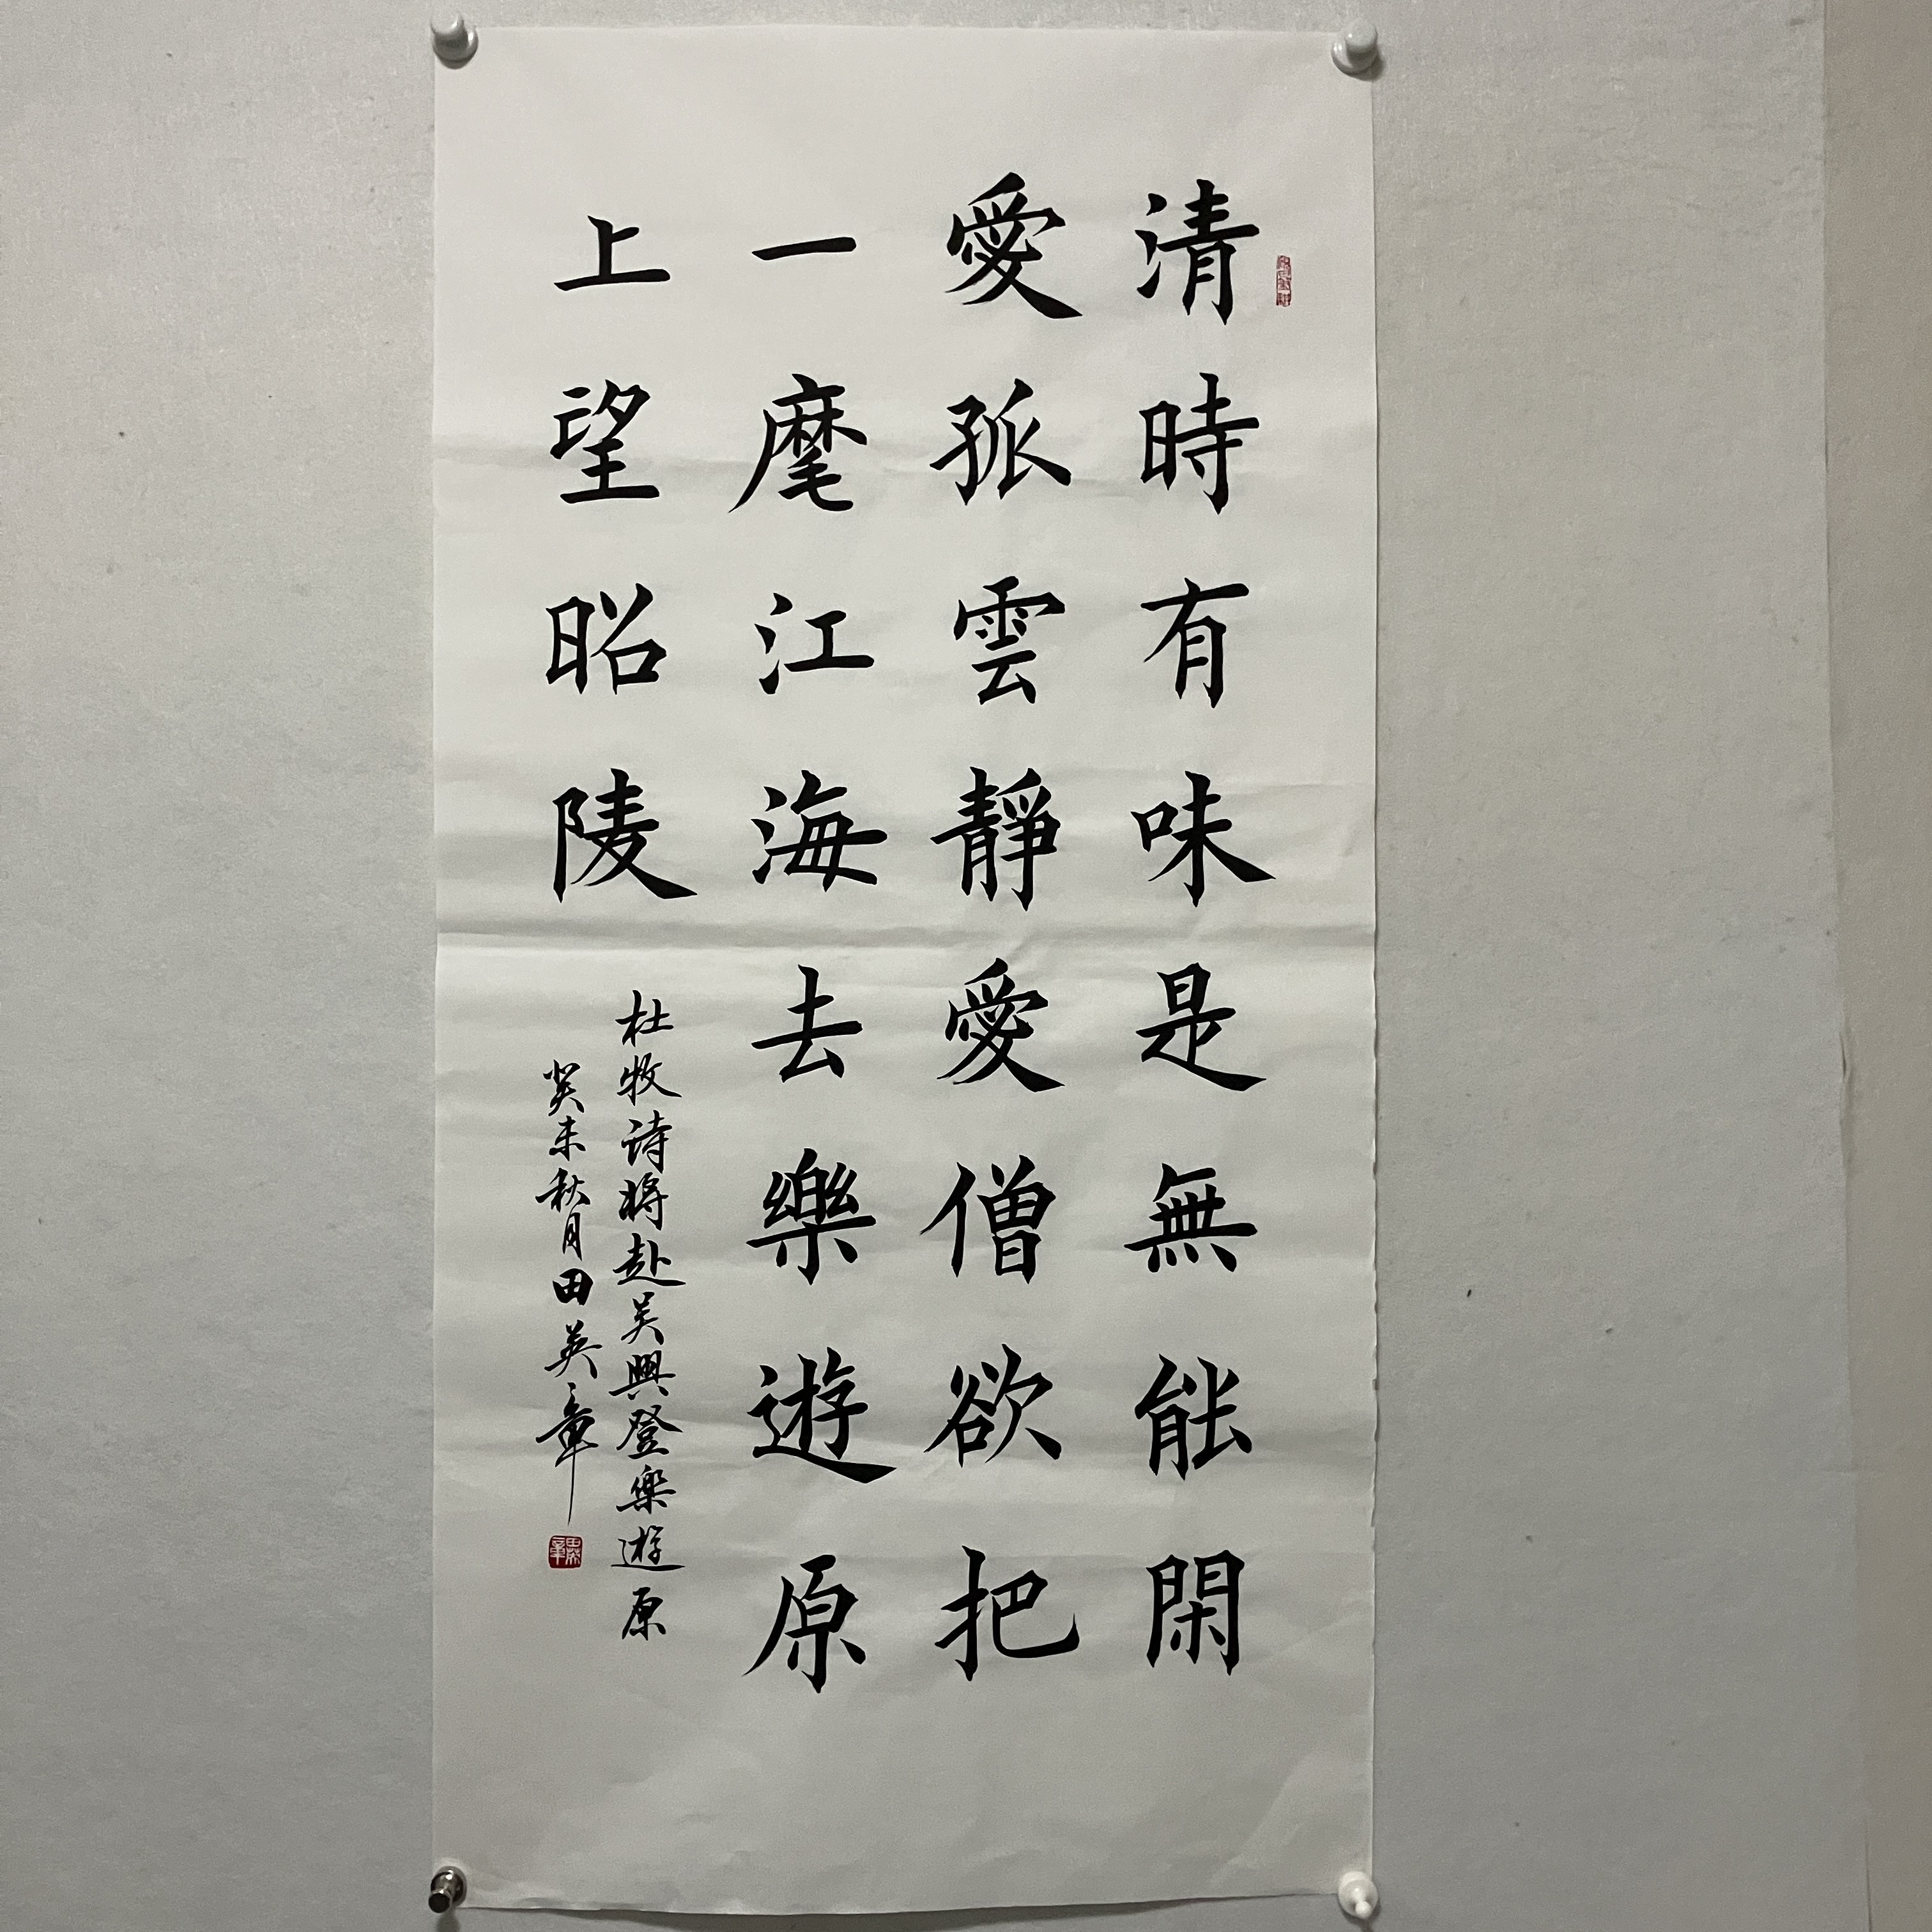 清時有味是無能閑
愛孤雲靜愛僧欲把
一麾江海去樂遊原
上望昭陵
杜牧诗將赴吴興登樂遊原
癸未秋月田英章